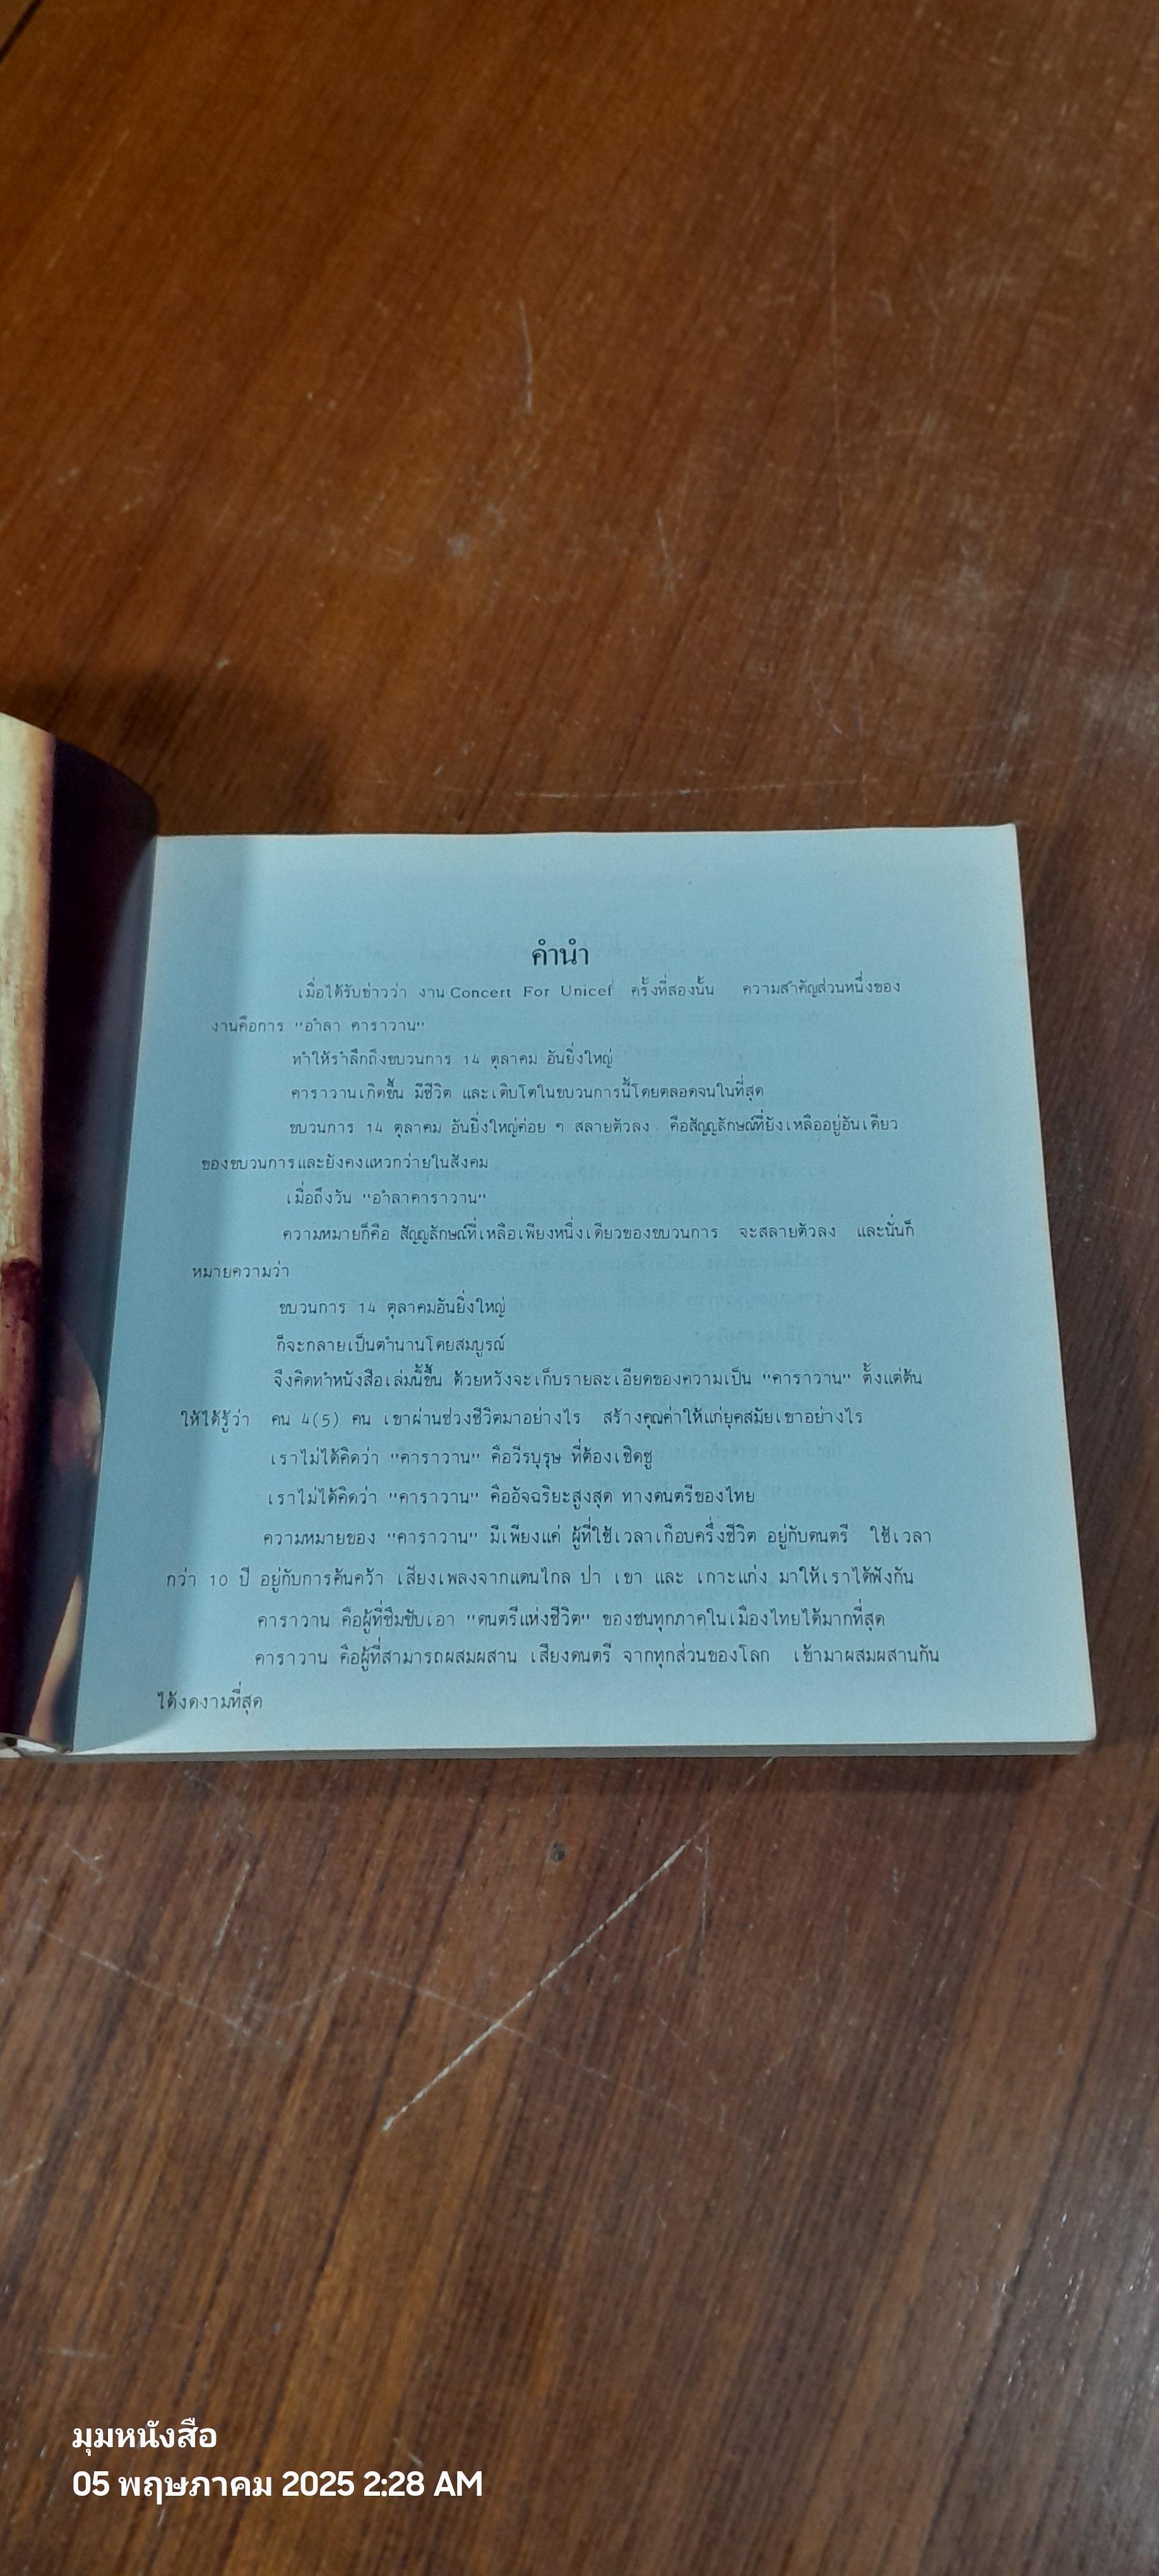 คำนำ
เมื่อได้รับข่าวว่า งาน Concert For Unicef ครั้งที่สองนั้น ความสำคัญส่วนหนึ่งของ
งานคือการ "อำลา คาราวาน"
ทำให้รำลึกถึงขบวนการ 14 ตุลาคม อันยิ่งใหญ่
คาราวานเกิดขึ้น มีชีวิต และเติบโตในขบวนการนี้โดยตลอดจนในที่สุด
ขบวนการ 14 ตุลาคม อันยิ่งใหญ่ค่อย ๆ สลายตัวลง คือสัญญลักษณ์ที่ยังเหลืออยู่อันเดียว
ของขบวนการและยังคงแหวกว่ายในสังคม
เมื่อถึงวัน "อำลาคาราวาน"
ความหมายก็คือ สัญญลักษณ์ที่เหลือเพียงหนึ่งเดียวของขบวนการ จะสลายตัวลง และนั่นก็
หมายความว่า
ขบวนการ 14 ตุลาคมอันยิ่งใหญ่
ก็จะกลายเป็นตำนานโดยสมบูรณ์
จึงคิดทำหนังสือเล่มนี้ขึ้น ด้วยหวังจะเก็บรายละเอียดของความเป็น "คาราวาน" ตั้งแต่ต้น
ให้ได้รู้ว่า คน 4(5) คน เขาผ่านช่วงชีวิตมาอย่างไร สร้างคุณค่าให้แก่ยุคสมัยเขาอย่างไร
เราไม่ได้คิดว่า "คาราวาน" คือวีรบุรุษ ที่ต้องเชิดชู
เราไม่ได้คิดว่า "คาราวาน" คืออัจฉริยะสูงสุด ทางดนตรีของไทย
ความหมายของ "คาราวาน" มีเพียงแค่ ผู้ที่ใช้เวลาเกือบครึ่งชีวิต อยู่กับดนตรี ใช้เวลา
กว่า 10 ปี อยู่กับการค้นคว้า เสียงเพลงจากแดนไกล ป่า เขา และ เกาะแก่ง มาให้เราได้ฟังกัน
คาราวาน คือผู้ที่ซึมซับเอา "ดนตรีแห่งชีวิต" ของชนทุกภาคในเมืองไทยได้มากที่สุด
คาราวาน คือผู้ที่สามารถผสมผสาน เสียงดนตรี จากทุกส่วนของโลก เข้ามาผสมผสานกัน
ได้งดงามที่สุด
มุมหนังสือ
05 พฤษภาคม 2025 2:28 AM